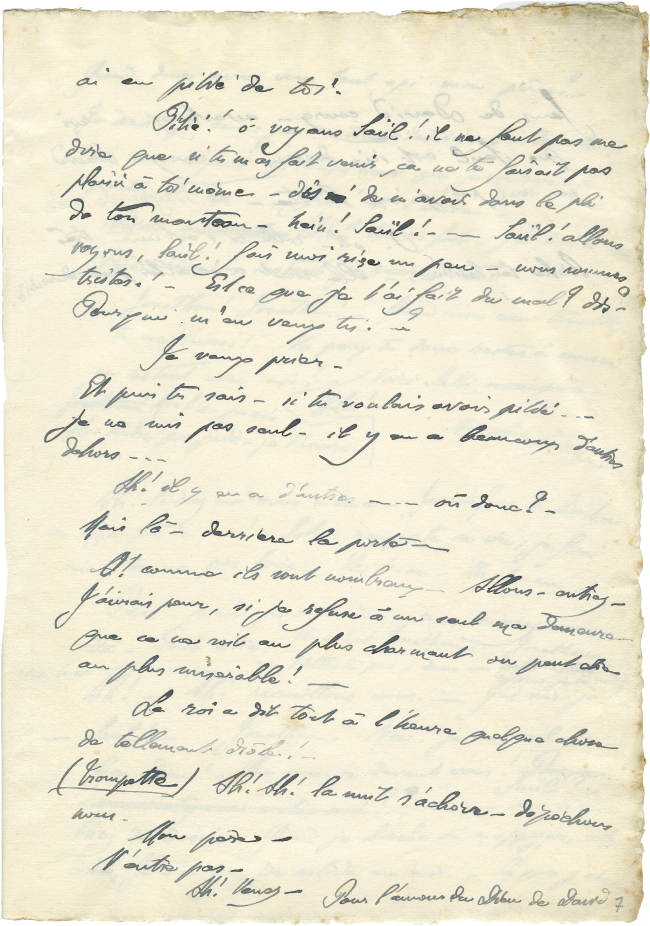 ai eu pitié de toi!
Pitié! ô voyons Saül! il ne faut pas me
dire que si tu m'as fait venir, ça ne te faisait pas
plaisir à toi même – dis! de m'avoir dans le pli
de ton manteau – hein! Saül! - – Saül! allons
voyons, Saül! fais moi rire un peu – nous sommes
tristes! – Est ce que je t'ai fait du mal? dis –
Pourquoi m'en veux tu. – ?
Je veux prier –
Et puis tu sais – si tu voulais avoir pitié - - -
Je ne suis pas seul – il y en a beaucoup d'autres
dehors - - -
Ah! il y en a d'autres - – - où donc? –
Mais là – derrière la porte –
A! comme ils sont nombreux – Allons – entrez –
J'aurais peur, si je refuse à un seul ma demeure –
que ce ne soit au plus charmant ou peut être
au plus misérable! –
Le roi a dit tout à l'heure quelque chose
de tellement drôle! –
(Trompette) Ah! Ah! la nuit s'achève – dépêchons
nous.
Mon père –
N'entre pas –
Ah! Venez –
Pour l'amour du Dieu de David 7